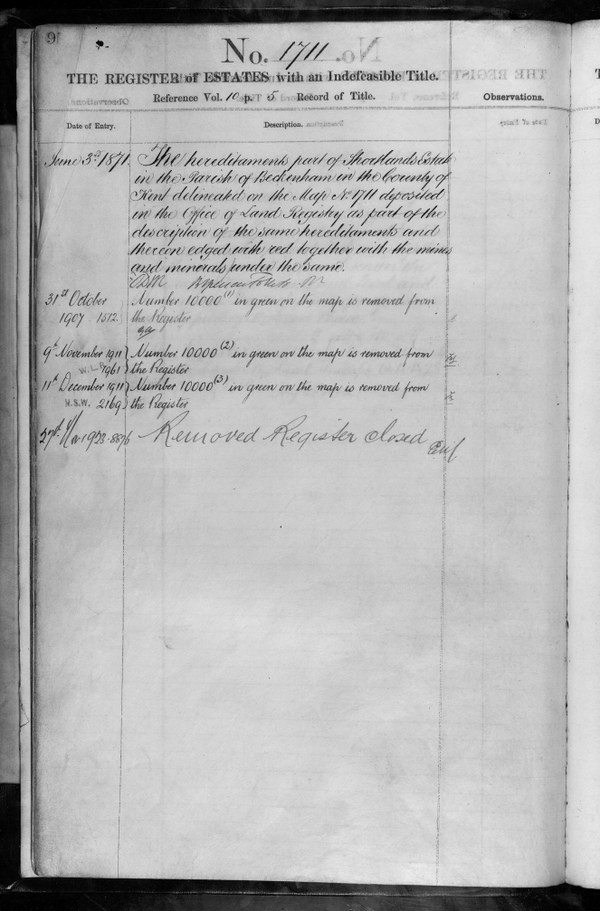 9
No. 1711
THE REGISTER of ESTATES with an Indefeasible Title.
Reference Vol. 10 p. 5 Record of Title. Observations.
Date of Entry. Description.
June 3rd 1871 The hereditaments part of Shortlands Estate
in the Parish of Beckenham in the County of
Kent delineated on the Map No 1711 deposited
in the Office of Land Registry as part of the
description of the same hereditaments and
thereon edged with red together with the mines
and minerals under the same.
31st October Number 10000 (1) in green on the map is removed from
1907 1512. the Register
9th November 1911 Number 10000 (2) in green on the map is removed from
1961 the Register
11th December 1911 Number 10000 (3) in green on the map is removed from
H.S.W. 2169 the Register
27th Removed Register closed